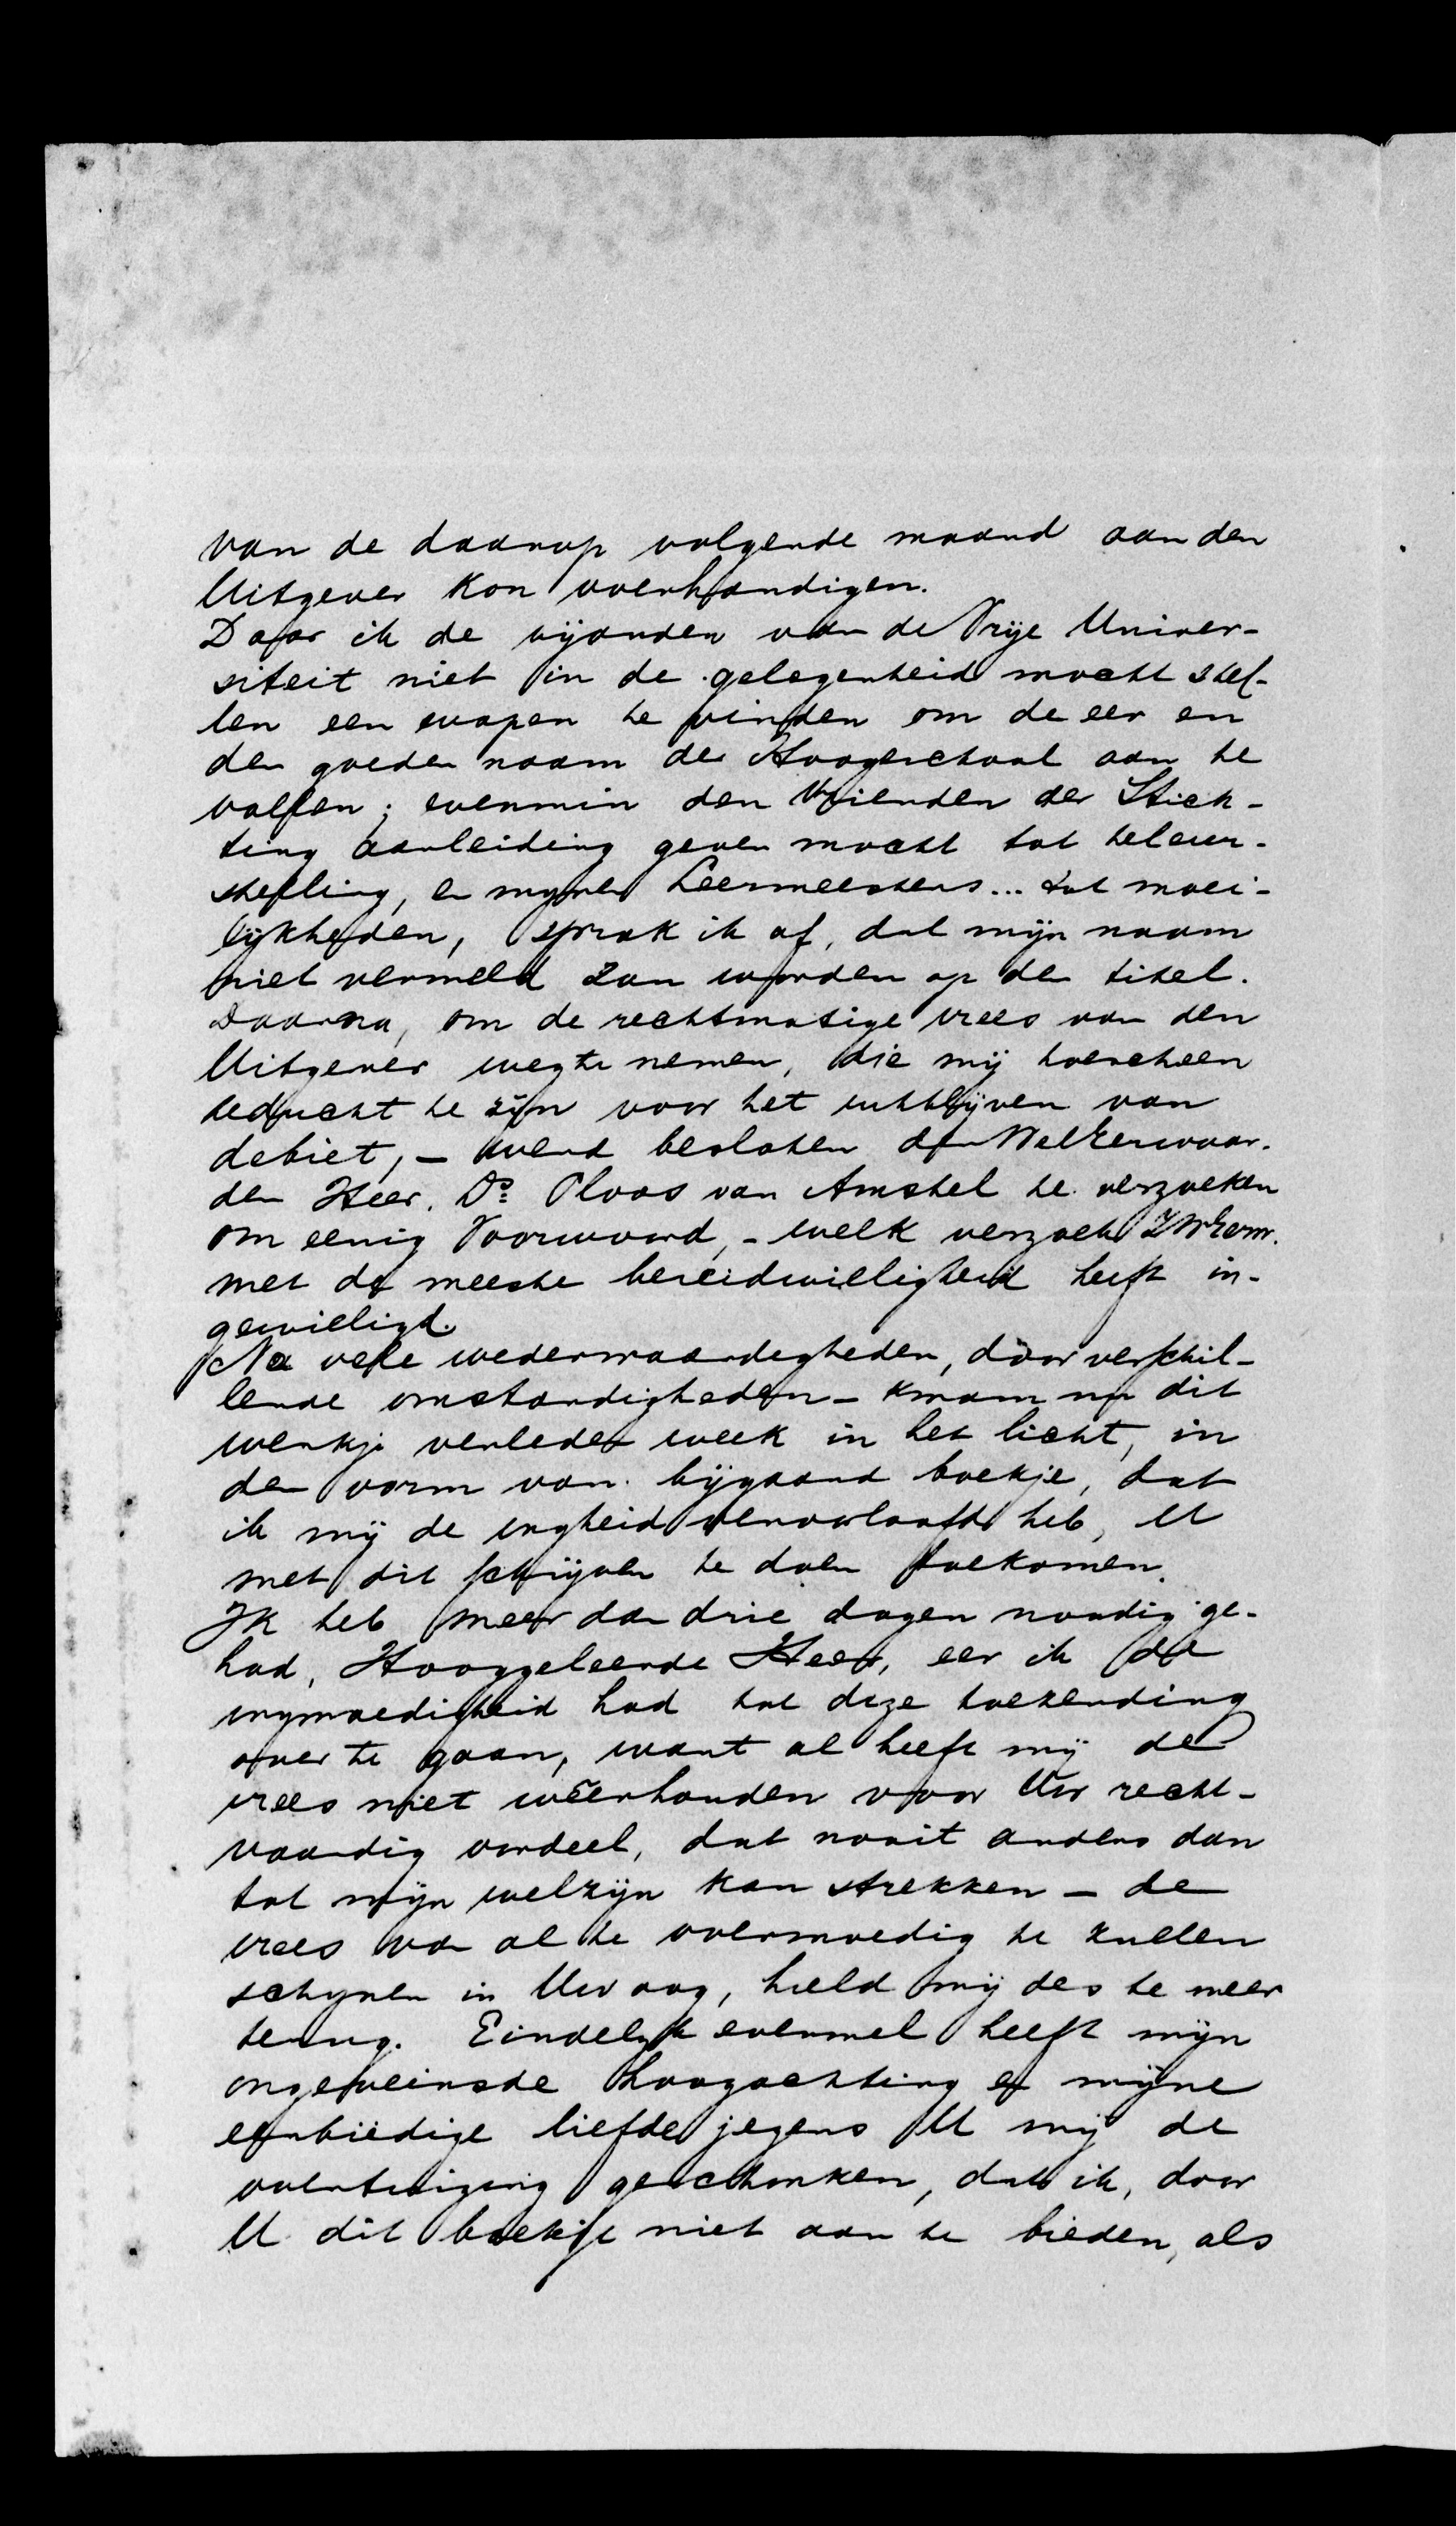 van de daarop volgende maand aan den
Uitgever kon overhandigen.
Daar ik de vijanden van de Vrije Univer-
siteit niet in de gelegenheid mocht stel-
len een wapen te vinden om de eer en
den goeden naam der Hoogeschool aan te
vallen; evenmin den Vrienden der Stich-
ting aanleiding geven mocht tot teleur-
stelling, en mynen Leermeesters... tot moei-
lijkheden, sprak ik af, dat mijn naam
niet vermeld zou worden op den titel.
Daarna, om de rechtmatige vrees van den
Uitgever weg te nemen, die mij toescheen
beducht te zijn voor het uitblijven van
debiet, – werd besloten den WelEerwaar-
den Heer. Ds. Ploos van Amstel te verzoeken
om eenig Voorwoord, - welk verzoek ZWEerw.
met de meeste bereidwilligheid heeft in-
gewilligd.
Na vele wederwaardigheden, door verschil-
lende omstandigheden - kwam nu dit
werkje verleden week in het licht, in
den vorm van bijgaand boekje, dat
ik mij de vrijheid veroorloofd heb, U
met dit schrijven te doen toekomen.
Ik heb meer dan drie dagen noodig ge-
had, Hooggeleerde Heer, eer ik de
vrymoedigheid had tot deze toezending
over te gaan, want al heeft mij de
vrees niet weêrhouden voor Uw recht-
vaardig oordeel, dat nooit anders dan
tot mijn welzijn kan strekken – de
vrees van al te overmoedig te zullen
schynen in Uw oog, hield mij des te meer
terug. Eindelyk evenwel heeft mijn
ongeveinsde hoogachting en mijne
eerbiedige liefde jegens U mij de
overtuiging geschonken, dat ik, door
U dit boekje niet aan te bieden, als